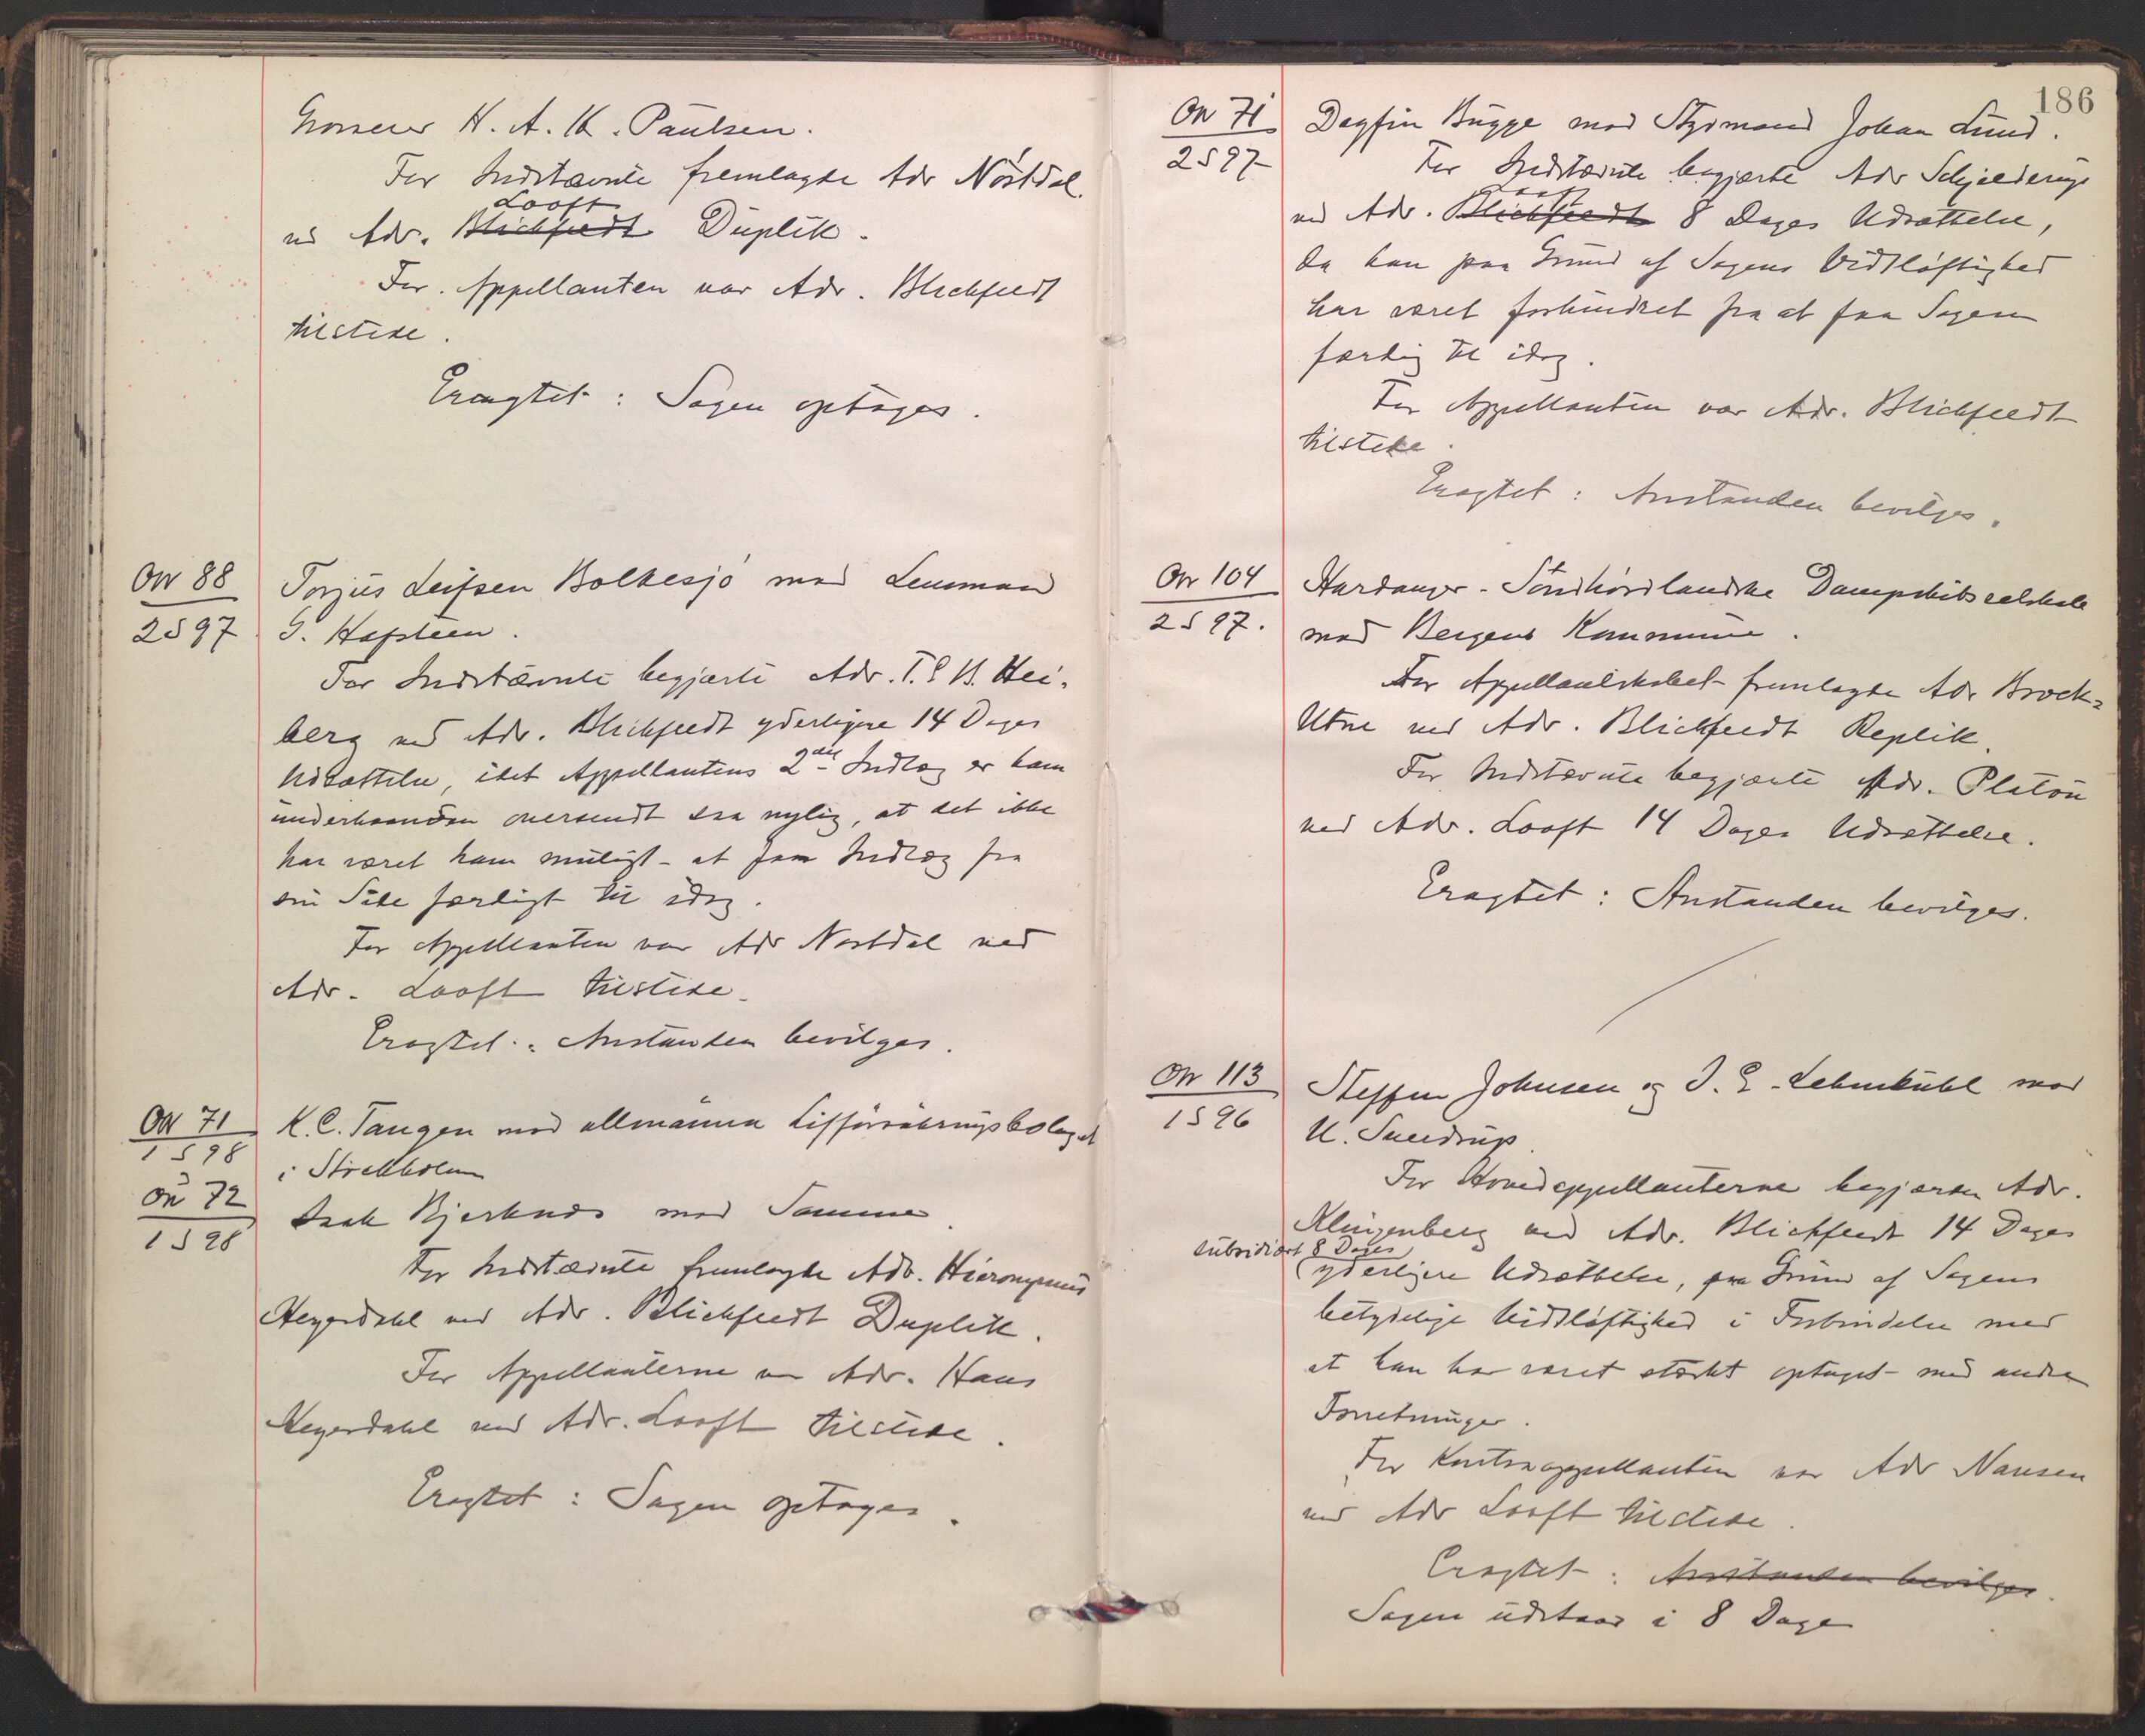 Grosserer H. A. K. Paulsen.
For Indstævnte fremlagde Adv Nöstdal
Looft
ved Adv. Blichfeldt Duplik.
For Appellanten var Adv. Blichfeldt
tilstede.
Eragtet: Sagen optages.
On 88
2 S 97
Torjus Leifsen Bolkesjö mod Lensmand
G. Hafsteen.
For Indstævnte begjærte Adv. T. E. B. Hei-
berg ved Adv. Blichfeldt yderligere 14 Dages
Udsættelse, idet Appellantens 2det Indlæg er ham
underhaanden oversendt saa nylig, at det ikke
har været ham muligt at faa Indlæg fra
sin Side færdigt til idag.
For Appellanten var Adv Nostdal ved
Adv. Looft tilstede.
Eragtet: Anstanden bevilges.
On 71
1 S 98
K. C. Tangen mod allmänna Lifförsäkringsbolaget
i Stockholm
On 72
1 S 98
Isak Bjerknæs mod Samme.
For Indstævnte fremlagde Adv. Hieronymus
Heyerdahl ved Adv. Blichfeldt Duplik.
For Appellanterne var Adv. Hans
Heyerdahl ved Adv. Looft tilstede.
Eragtet: Sagen optages.
186
On 71
2 S 97
Dagfin Bugge mod Styrmand Johan Lund.
For Indstævnte begjærte Adv Schjelderup
Looft
ved Adv. Blichfeldt 8 Dages Udsættelse,
da han paa Grund af Sagens Vidtløftighed
har været forhindret fra at faa Sagen
færdig til idag.
For Appellanten var Adv. Blichfeldt
tilstede.
Eragtet: Anstanden bevilges.
On 104
2 S 97.
Hardanger-Söndhordlandske Dampskibsselskab
mod Bergens Kommune.
For Appellantskabet fremlagde Adv Brock-
Utne ved Adv. Blichfeldt Replik.
For Indstævnte begjærte Adv. Platou
ved Adv. Looft 14 Dages Udsættelse.
Eragtet: Anstanden bevilges.
On 113
1 S 96
Steffen Johnsen og J. E. Lehmkuhl mod
U. Sverdrup.
For Hovedappellanterne begjærte Adv.
Klingenberg ved Adv. Blichfeldt 14 Dages
subsidiært 8 Dages
yderligere Udsættelse, paa Grund af Sagens
betydelige Vidtløftighed i Forbindelse med
at han har været stærkt optaget med andre
Forretninger.
For Kontraappellanten var Adv Nansen
ved Adv Looft tilstede.
Eragtet: Anstanden bevilges.
Sagen udstaar i 8 Dage